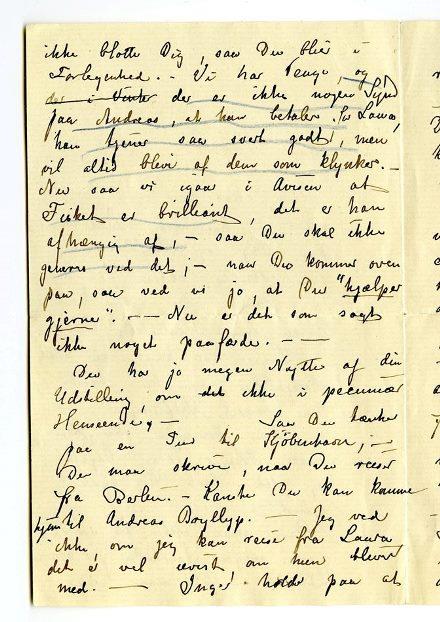 ikke blotte Dig, saa Du blir i
Forlegenhed. - Vi har Penge, og
der i Vinter der er ikke nogen Synd
paa Andreas, at han betaler. for Laura,
han tjener saa svært godt, men
vil altid blive af dem som klynker. -
Nu saa vi igaar i Avisen at
Fisket er brilliant, det er han
afhængig af, - saa Du skal ikke
genere ved det; - naar Du kommer oven
paa, saa ved vi jo, at Du "hjælper
gjerne". - - Nu er det som sagt
ikke noget paafærde. - -
Du har jo megen Nytte af din
Udstilling, om det ikke i pecuniær
Henseende, - Saa Du tænker
paa en Tur til Kjöbenhavn; -
Du maa skrive, naar Du reiser
fra Berlin. - Kanske Du kan komme
hjem til Andreas Bryllyp. - Jeg ved
ikke, om jeg kan reise fra Laura
det er vel uvist om hun bliver
med. - Inger holdt paa at